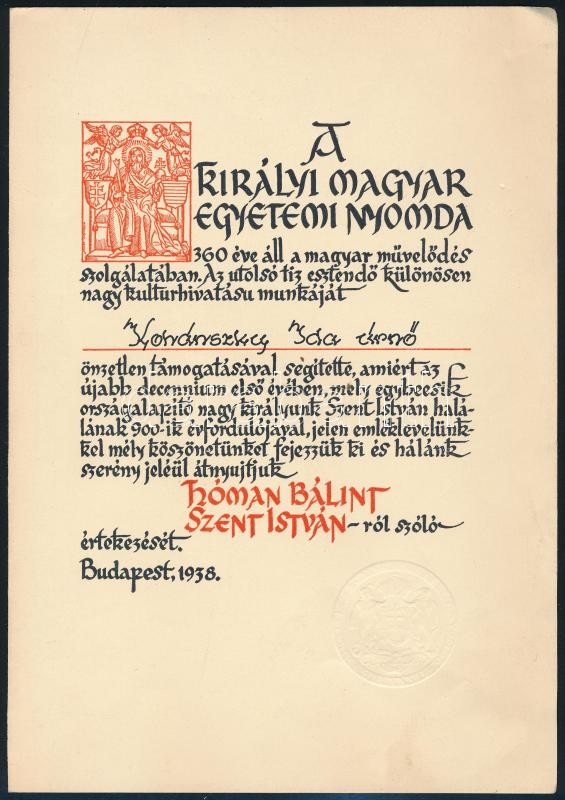 A
KIRÁLYI MAGYAR
EGYETEMI NYOMDA
360 éve áll a magyar művelődés
szolgálatában. Az utolsó tiz esztendő különösen
nagy kulturhivatásu munkáját
Ida
önzetlen támogatásával segitette, amiért az
újabb decennium első évében, mely egybeesik
országalapitó nagy királyunk Szent István halá-
lának 900-ik évfordulójával, jelen emléklevelünk-
kel mély köszönetünket fejezzük ki és hálánk
szerény jeléül átnyujtjuk
HÓMAN BÁLINT
SZENT ISTVÁN-ról szóló
értekezését.
Budapest, 1938.